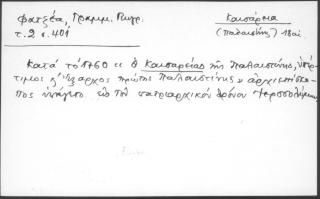 Φατζέα, Γραμμ. Πωγρ.
τ. 2 σ. 401
Καισάρεια
(Παλαιστίνης) 18 αἰ.
Κατά τό 1760 " ὁ Καισαρείας τῆς Παλαιστίνης, ὑπέρ-
τιμος κ' ἔξαρχος πρώτης Παλαιστίνης " ἀρχιεπίσκο-
πος τόν πατριαρχικόν θρόνον Ἱεροσολύμων